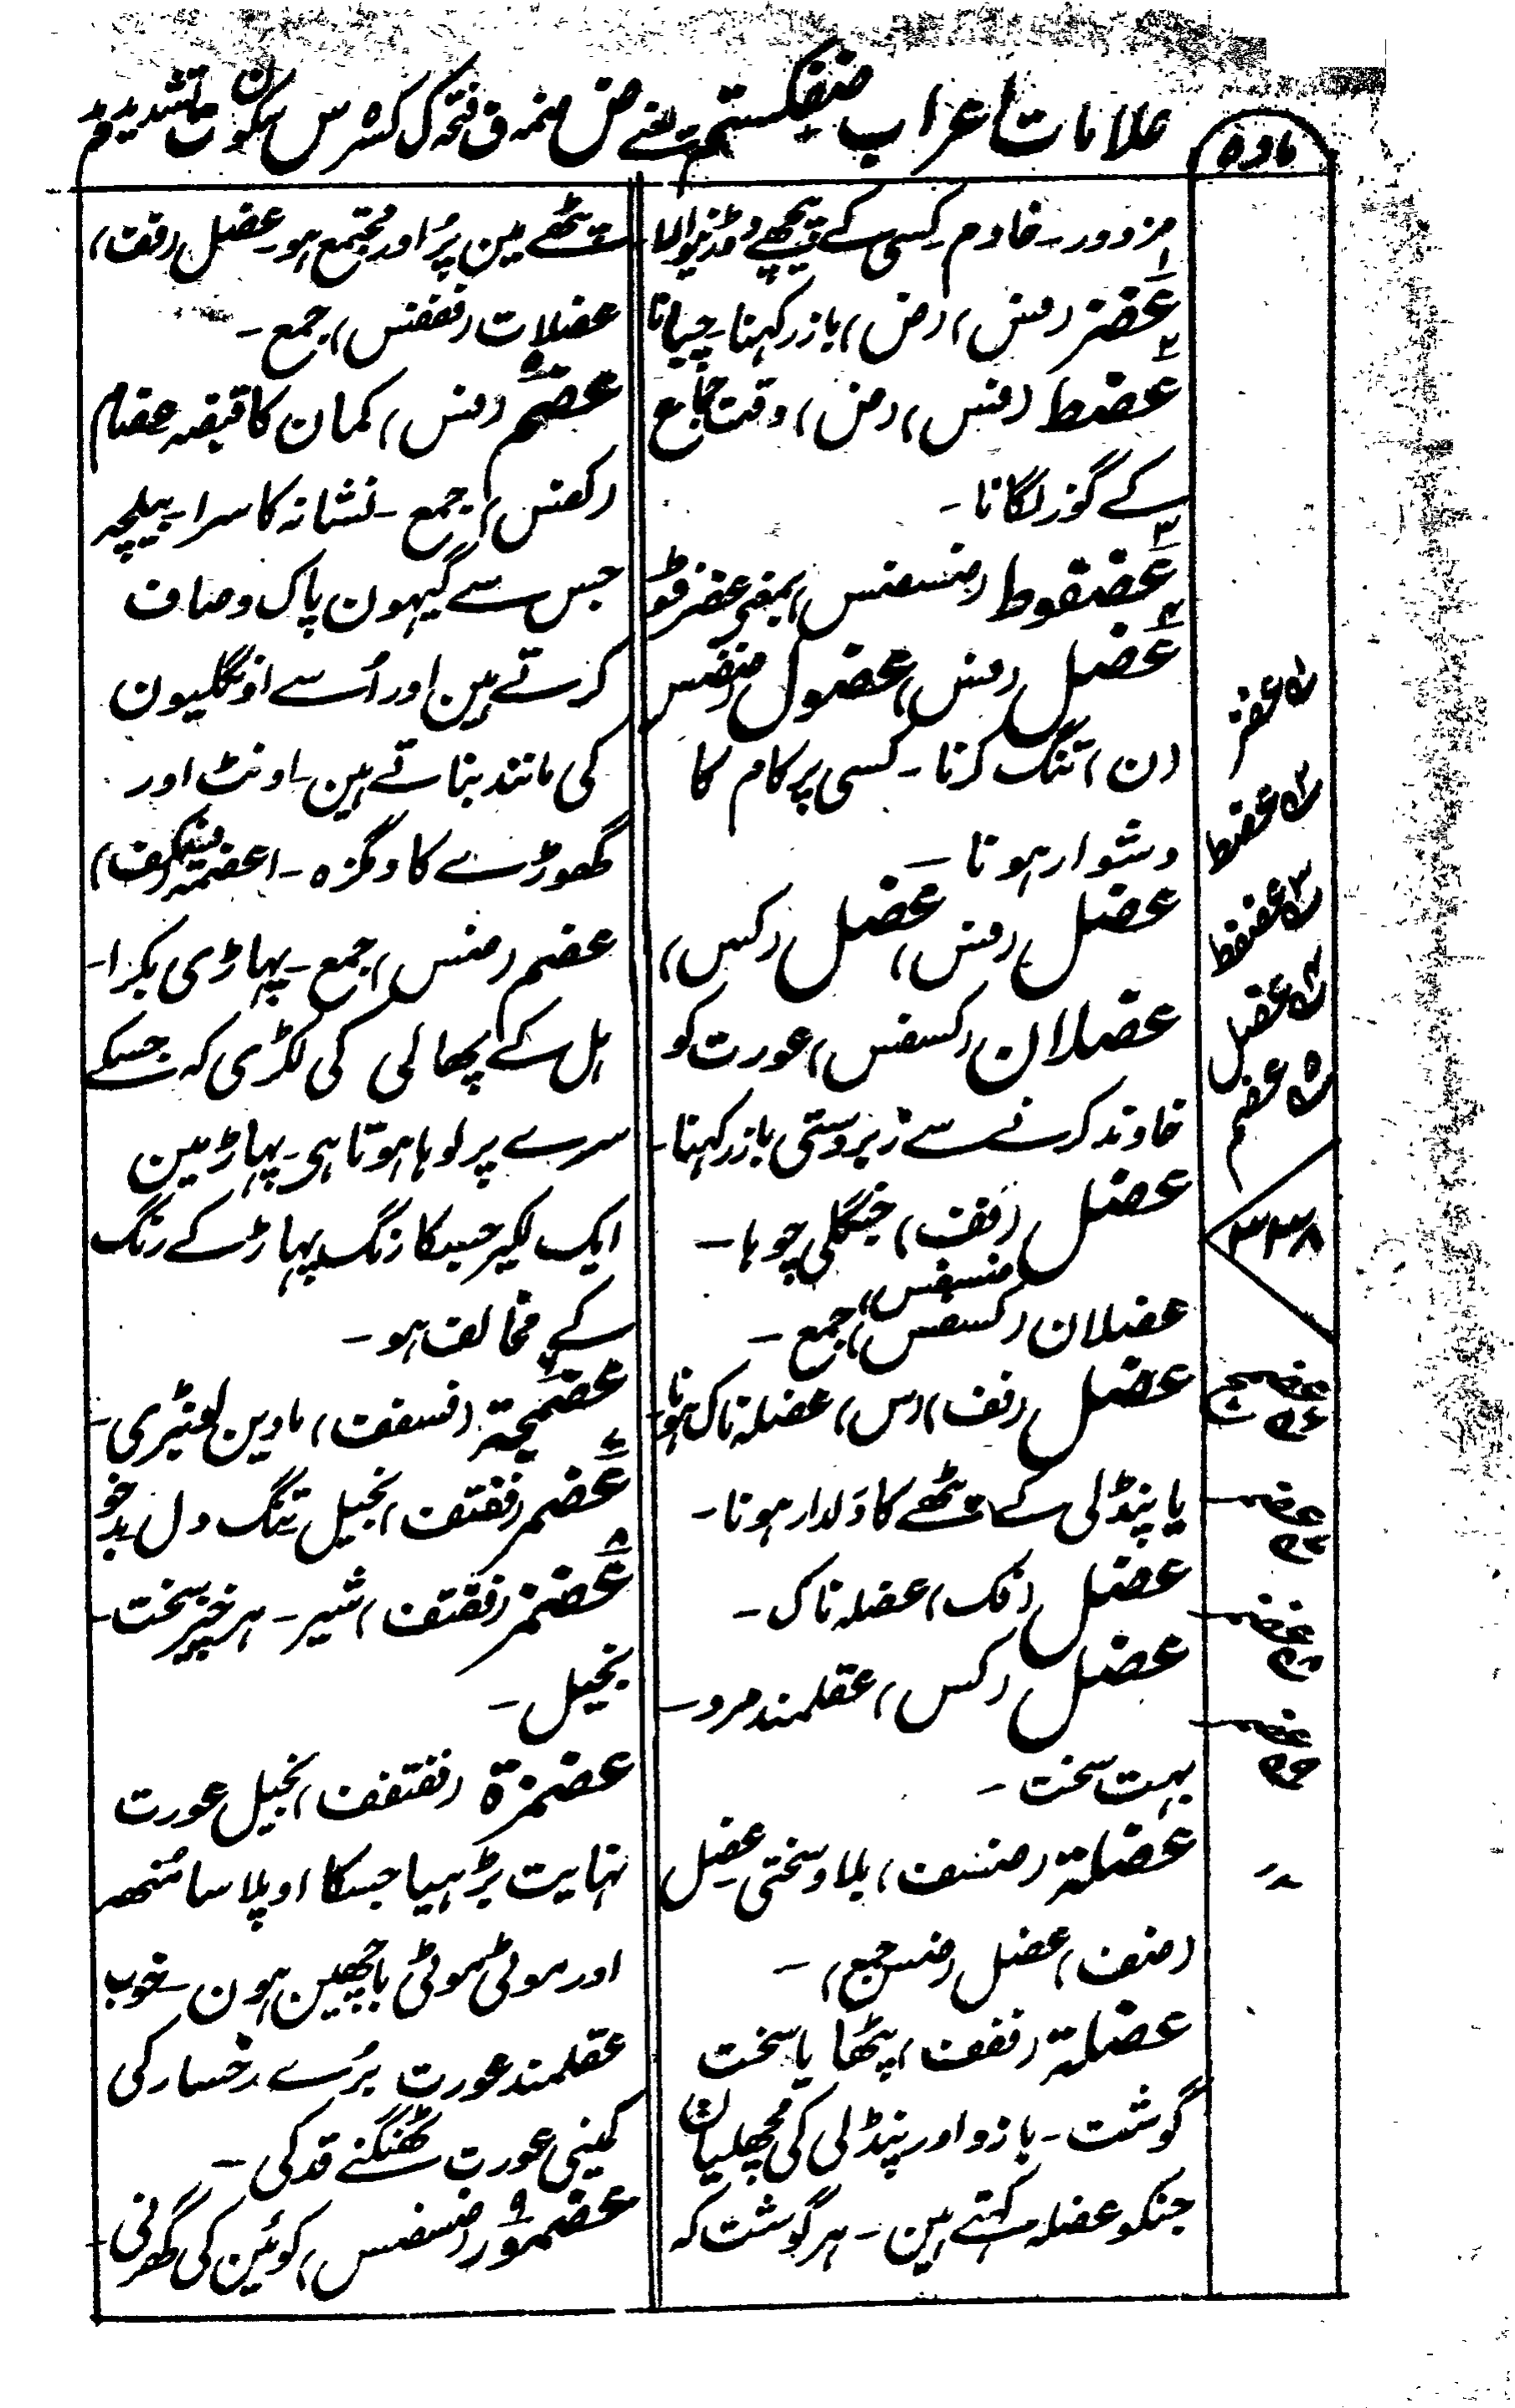 علامات اعراب ضفکستم یعنے ض ضمہ ف فتحہ ک کسرہ س سکون ت تشدید م
مادہ
مزدور۔ خادم۔ کسی کے پیچھے دوڑنیوالا۔
عَضْز (فس) (ض) باز رکہنا۔ چبانا
عَضْط (فس) (ض) وقت جماع
کے گوز لگانا۔
عَضفوط (ضسفس) بمعنی عضرفوط
عَضل (فس) عضول (ضفس)
(ن) تنگ کرنا۔ کسی پر کام کا
دشوار ہونا۔
عضل (فس) عضل (کس)
عضلان (کسفس) عورت کو
خاوند کرنے سے زبردستی باز رکہنا۔
عضل (فف) جنگلی چوہا۔
عضلان (کسفس) (ضسفس) جمع۔
عضل (فف) (س) عضلہ ناک ہونا
یا پنڈلی کے پٹھے کا دَلدار ہونا۔
عضل (فک) عضلہ ناک۔
عضل (کس) عقلمند مرد۔
بہت سخت۔
عضلۃ (ضسف) بلا و سختی عضل
(ضف) عضل (ضس) جمع۔
عضلۃ (ففف) پٹھا یا سخت
گوشت۔ بازو اور پنڈلی کی مچھلیان
جنکو عضلہ کہتے ہین۔ ہر گوشت کہ
پٹھے مین پُر اور مجتمع ہو۔ عضل (فف)
عضلات (فففس) جمع۔
عضم (فس) کمان کا قبضہ عضام
(کفس) جمع۔ نشانہ کا سرا۔ بیلچہ
جس سے گیہون پاک و صاف
کرتے ہین اور اُسے اونگلیون
کی مانند بناتے ہین۔ اونٹ اور
گھوڑے کا دمگزہ۔ اعضمہ (فسکف)
عضم (ضس) جمع۔ پہاڑی بکرا۔
ہل کے پھالی کی لکڑی کہ جسکے
سرے پر لوہا ہوتا ہی۔ پہاڑ مین
ایک لکیر جسکا رنگ پہاڑ کے رنگ
کے مخالف ہو۔
عضمجۃ (فسففت) مادین لونبڑی۔
عَضمر (ففتف) بخیل تنگ دل بدخو
عَضمز (ففتف) شیر۔ ہر چیز سخت۔
بخیل۔
عضمزۃ (ففتفف) بخیل عورت
نہایت بڑہیا جسکا اوپلا سا مُنھ
اور موٹی موٹی باچھین ہون۔ خوب
عقلمند عورت بُرے رخسار کی
کمینی عورت ٹھنگنے قد کی۔
عضمور (ضسفس) کوئین کی گھرنی۔
۱ عضز
۲ عضط
۳ عضفط
۴ عضل
۵ عضم
۳۳۸